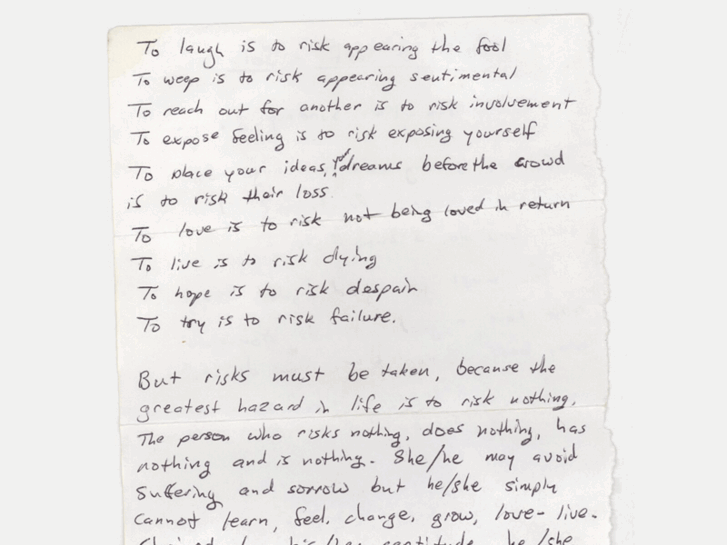 To laugh is to risk appearing the fool
To weep is to risk appearing sentimental
To reach out for another is to risk involvement
To expose feeling is to risk exposing yourself
To place your ideas, dreams before the crowd
is to risk their loss
To love is to risk not being loved in return
To live is to risk dying
To hope is to risk despair
To try is to risk failure.
But risks must be taken, because the
greatest hazard in life is to risk nothing.
The person who risks nothing, does nothing, has
nothing and is nothing. She/he may avoid
suffering and sorrow but he/she simply
cannot learn, feel, change, grow, love - live.
he/she